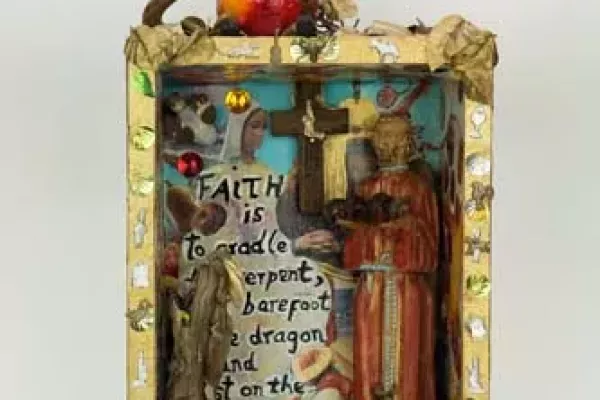 FAITH
is
to cradle
erpent,
barefoot
dragon
nd
on the